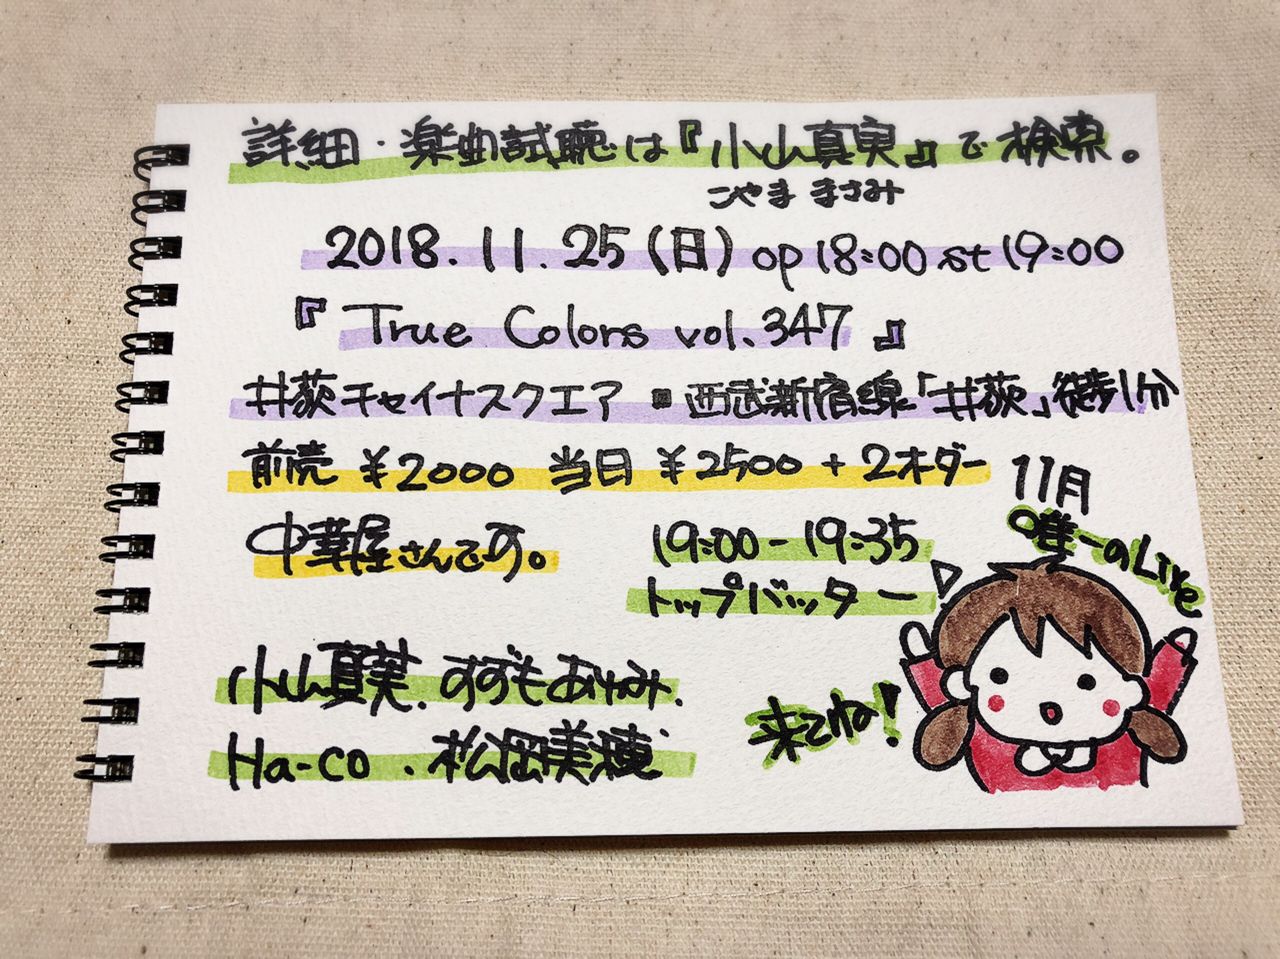 詳細・楽曲試聴は『小山真実』で検索。
こやま まさみ
2018.11.25(日) op18:00 st19:00
『True Colors vol.347』
井荻チャイナスクエア ■西武新宿線「井荻」徒歩1分
前売 ¥2000 当日 ¥2500+2オーダー
中華屋さんです。
19:00-19:35
トップバッター
11月
唯一のLive
小山真実.すずもとあゆみ.
Ha-co.松岡美穂
来てね!